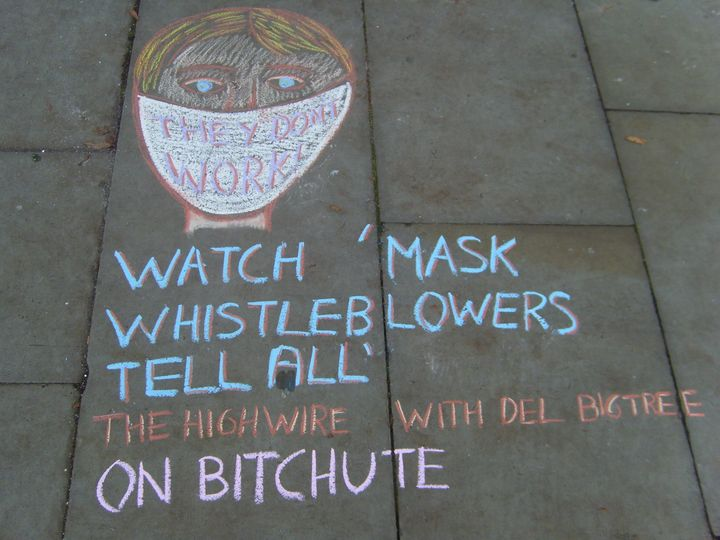 THEY DON'T
WORK!
WATCH 'MASK
WHISTLEBLOWERS
TELL ALL'
THE HIGHWIRE WITH DEL BIGTREE
ON BITCHUTE